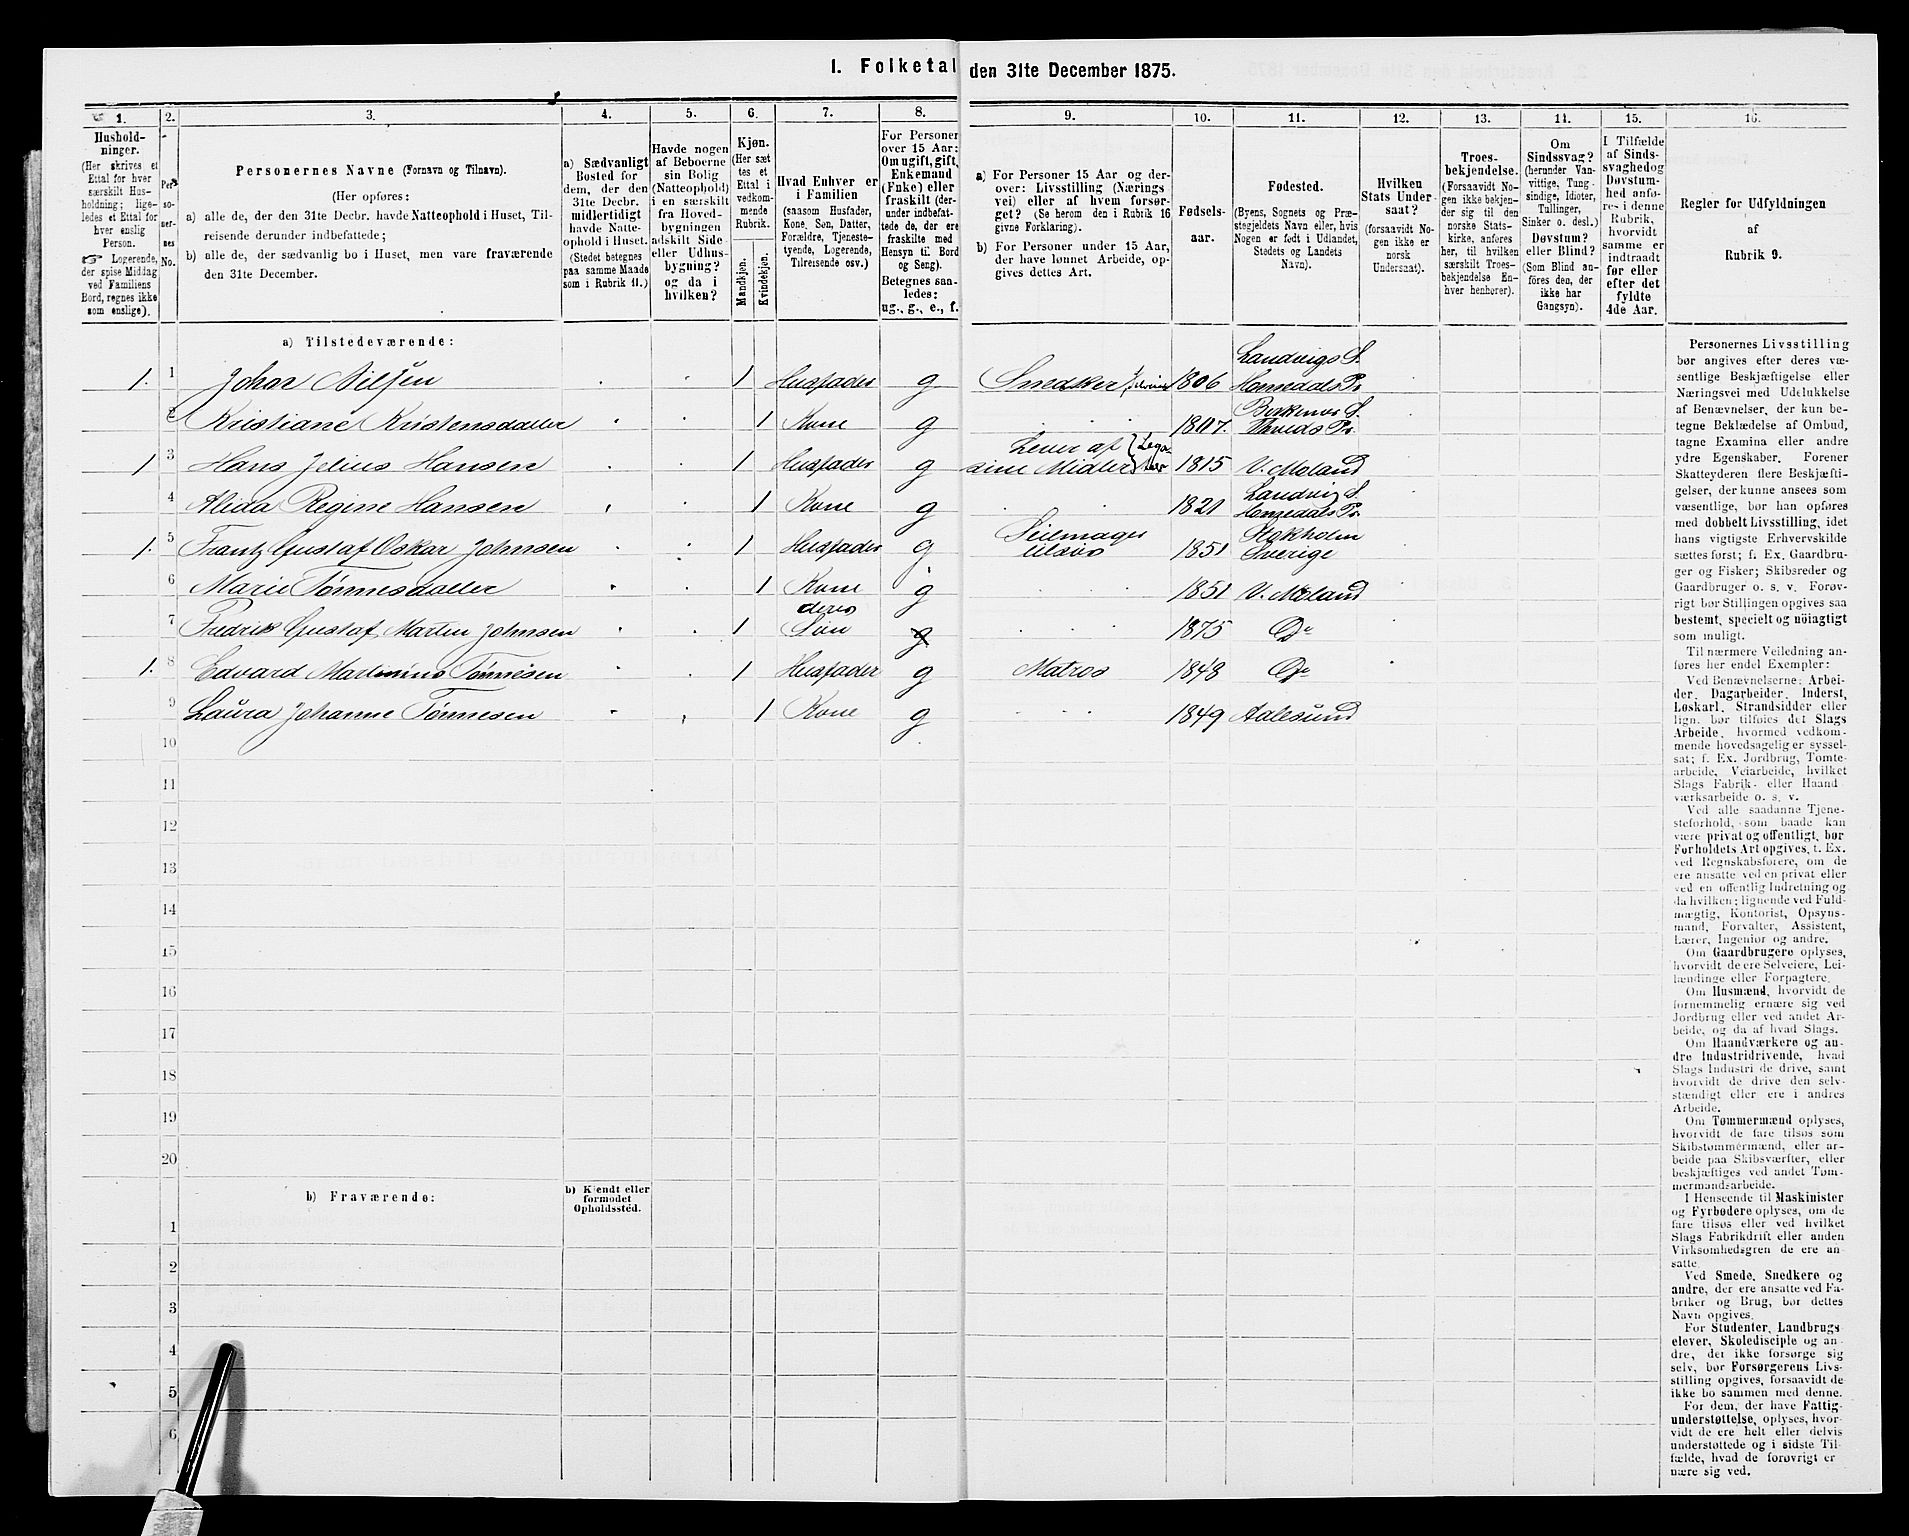 I. Folketal den 31te December 1875.
1.
Hushold-
ninger.
(Her skrives et
Ettal for hver
særskilt Hus-
holdning; lige-
ledes et Ettal for
hver enslig
Person.
☞ Logerende,
der spise Middag
ved Familiens
Bord, regnes ikke
som enslige).
2.
Per-
so-
ner-
nes
No.
3.
Personernes Navne (Fornavn og Tilnavn).
(Her opføres:
a) alle de, der den 31te Decbr. havde Natteophold i Huset, Til-
reisende derunder indbefattede;
b) alle de, der sædvanlig bo i Huset, men vare fraværende
den 31te December.
4.
a) Sædvanligt
Bosted for
dem, der den
31te Decbr.
midlertidigt
havde Natte-
ophold i Huset.
(Stedet betegnes
paa samme Maade
som i Rubrik 11.)
5.
Havde nogen
af Beboerne
sin Bolig
(Natteophold)
i en særskilt
fra Hoved-
bygningen
adskilt Side-
eller Udhus-
bygning?
og da i
hvilken?
6.
Kjøn.
(Her sæt-
tes et
Ettal i
vedkom-
mende
Rubrik.
Mandkjøn.
Kvindekjøn.
7.
Hvad Enhver er
i Familien
(saasom Husfader,
Kone, Søn, Datter,
Forældre, Tjeneste-
tyende, Logerende,
Tilreisende osv.)
8.
For Personer
over 15 Aar:
Om ugift, gift,
Enkemand
(Enke) eller
fraskilt (der-
under indbefat-
tede de, der ere
fraskilte med
Hensyn til Bord
og Seng).
Betegnes saa-
ledes:
ug., g., e., f.
9.
a) For Personer 15 Aar og der-
over: Livsstilling (Nærings-
vei) eller af hvem forsør-
get? (Se herom den i Rubrik 16
givne Forklaring).
b) For Personer under 15 Aar,
der have lønnet Arbeide, op-
gives dettes Art.
10.
Fødsels-
aar.
11.
Fødested.
(Byens, Sognets og Præ-
stegjeldets Navn eller, hvis
Nogen er født i Udlandet,
Stedets og Landets
Navn).
12.
Hvilken
Stats Under-
saat?
(forsaavidt No-
gen ikke er
norsk
Undersaat).
13.
Troes-
bekjendelse.
(Forsaavidt No-
gen ikke bekjen-
der sig til den
norske Stats-
kirke, anføres
her, til hvilken
særskilt Troes-
bekjendelse En-
hver henhører).
14.
Om
Sindssvag?
(herunder Van-
vittige, Tung-
sindige, Idioter,
Tullinger,
Sinker o. desl.)
Døvstum?
eller Blind?
(Som Blind an-
føres den, der
ikke har
Gangsyn).
15.
I Tilfælde
af Sinds-
svaghed og
Døvstum-
hed anfø-
res i denne
Rubrik,
hvorvidt
samme er
indtraadt
før eller
efter det
fyldte
4de Aar.
16.
Regler for Udfyldningen
af
Rubrik 9.
a) Tilstedeværende:
1. 1 Johan Nilsen 1 Husfader g Snedker 1806 Landvigs S. Homedals Pr
2 Kristiane Kristensdatter 1 Kone g 1807. Birkenes S. Pr.
1 3 Hans Jelius Hansen 1 Husfader g Lever af sine Midler 1815 V. Moland
4 Alida Regine Hansen 1 Kone g 1821 Landvig S. Homedals Pr
1. 5 Frantz Gustaf Oskar Johnsen 1 Husfader g Seilmager tilsøs 1851 Stokholm Sverige
6 Marie Tønnesdatter 1 Kone g 1851 V. Moland
7 Fredrik Gustaf Martin Johnsen 1 deres Søn g 1875 Do
1. 8 Edvard Martinius Tønnesen 1 Husfader g Matros 1848 Do
9 Laura Johanne Tønnesen 1 Kone g 1849 Aalesund
10
11
12
13
14
15
16
17
18
19
20
b) Fraværende:
b) Kjendt eller
formodet
Opholdssted.
1
2
3
4
5
6
Personernes Livsstilling
bør angives efter deres væ-
sentlige Beskjæftigelse eller
Næringsvei med Udelukkelse
af Benævnelser, der kun be-
tegne Beklædelse af Ombud,
tagne Examina eller andre
ydre Egenskaber. Forener
Skatteyderen flere Beskjæfti-
gelser, der kunne ansees som
væsentlige, bør han opføres
med dobbelt Livsstilling, idet
hans vigtigste Erhvervskilde
sættes først; f. Ex. Gaardbru-
ger og Fisker; Skibsreder og
Gaardbruger o. s. v. Forøv-
rigt bør Stillingen opgives saa
bestemt, specielt og nøiagtigt
som muligt.
Til nærmere Veiledning an-
føres her endel Exempler:
Ved Benævnelserne: Arbei-
der, Dagarbeider, Inderst,
Løskarl, Strandsidder eller
lign. bør tilføies det Slags
Arbeide, hvormed vedkom-
mende hovedsagelig er syssel-
sat; f. Ex. Jordbrug, Tomte-
arbeide, Veiarbeide, hvilket
Slags Fabrik- eller Haand-
værksarbeide o. s. v.
Ved alle saadanne Tjene-
steforhold, som baade kan
være privat og offentligt, bør
Forholdets Art opgives, f. Ex.
ved Regnskabsførere, om de
ere ansatte ved en privat eller
ved en offentlig Indretning og
da hvilken; lignende ved Fuld-
mægtig, Kontorist, Opsyns-
mand, Forvalter, Assistent,
Lærer, Ingeniør og andre.
Om Gaardbrugere oplyses,
hvorvidt de ere Selveiere, Lei-
lændinge eller Forpagtere.
Om Husmænd, hvorvidt de
fornemmelig ernære sig ved
Jordbrug eller ved andet Ar-
beide, og da af hvad Slags.
Om Haandværkere og an-
dre Industridrivende, hvad
Slags Industri de drive, samt
hvorvidt de drive den selv-
stændigt eller ere i andres
Arbeide.
Om Tømmermænd oplyses,
hvorvidt de fare tilsøs som
Skibstømmermænd, eller ar-
beide paa Skibsværfter, eller
beskjæftiges ved andet Tøm-
mermandsarbeide.
I Henseende til Maskinister
og Fyrbødere oplyses, om de
fare tilsøs eller ved hvilket
Slags Fabrikdrift eller anden
Virksomhedsgren de ere an-
satte.
Ved Smede, Snedkere og
andre, der ere ansatte ved Fa-
briker og Brug, bør dettes
Navn opgives.
For Studenter, Landbrugs-
elever, Skoledisciple og an-
dre, der ikke forsørge sig
selv, bør Forsørgerens Livs-
stilling opgives, forsaavidt de
ikke bo sammen med denne.
For dem, der have Fattig-
understøttelse, oplyses, hvor-
vidt de ere helt eller delvis
understøttede og i sidste Til-
fælde, hvad de forøvrigt er-
nære sig ved.